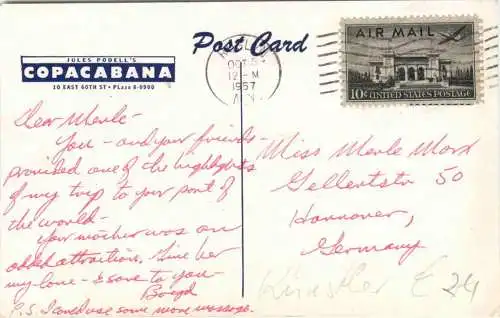 JULES PODELL'S
COPACABANA
10 EAST 60TH ST • PLaza 8-0900
Post Card
OCT 5
12 - M
1957
N.Y.
AIR MAIL
10¢ UNITED STATES POSTAGE
Dear Merle-
You - and your friends-
provided one of the highlights
of my trip to your part of
the world-
Your mother was an
added attraction. Give her
my love - & save to you-
Boyd
P.S. I could use some more massage.
Miss Merle Marx
Gellertstr 50
Hannover,
Germany
Künstler € 24